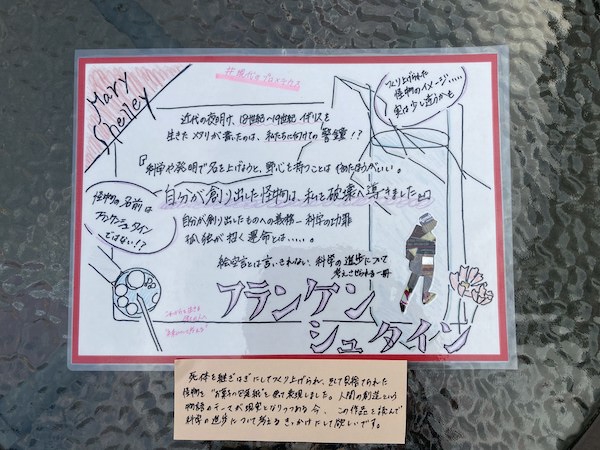 Mary
Shelley
#現代のプロメテウス
つくり上げられた
怪物のイメージ……
実は少し違うかも
近代の夜明け、18世紀〜19世紀イギリスを
生きたメアリが書いたのは、私たちに向けての警鐘!?
『科学や発明で名を上げようと、野心を持つことは やめたほうがいい。
自分が創り出した怪物は、私を破棄へ導きました』
怪物の名前は
フランケンシュタイン
ではない!?
自分が創り出したものへの義務ー科学の功罪
孤独が招く運命とは……。
絵空言とは言いきれない、科学の進歩について
考えさせられる一冊
フランケン
シュタイン
死体を継ぎはぎにしてつくり上げられ、そして見捨てられた
怪物を"お菓子の包装紙"を使って表現しました。人間の創造という
物語のテーマが現実となりつつある今、この作品を読んで
科学の進歩について考えるきっかけにして欲しいです。